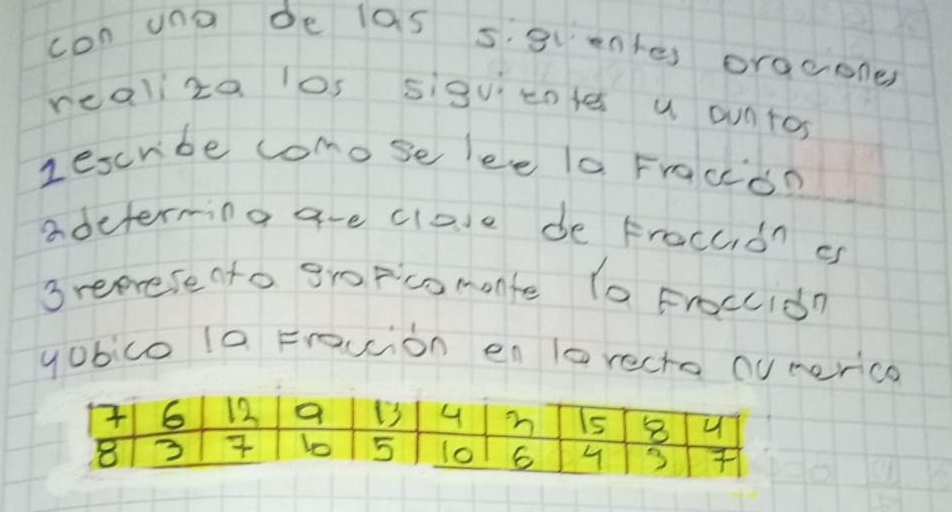 con una de las siguientes oraciones
realiza los siguientes 4 puntos
1 escribe como se lee la Fracción
2 determina que clase de Fracción es
3 representa graficamente la Fracción
4 ubico la Fracción en la recta numerica
7 6 12 9 13 4 2 15 8 4
8 3 7 10 5 10 6 4 3 7